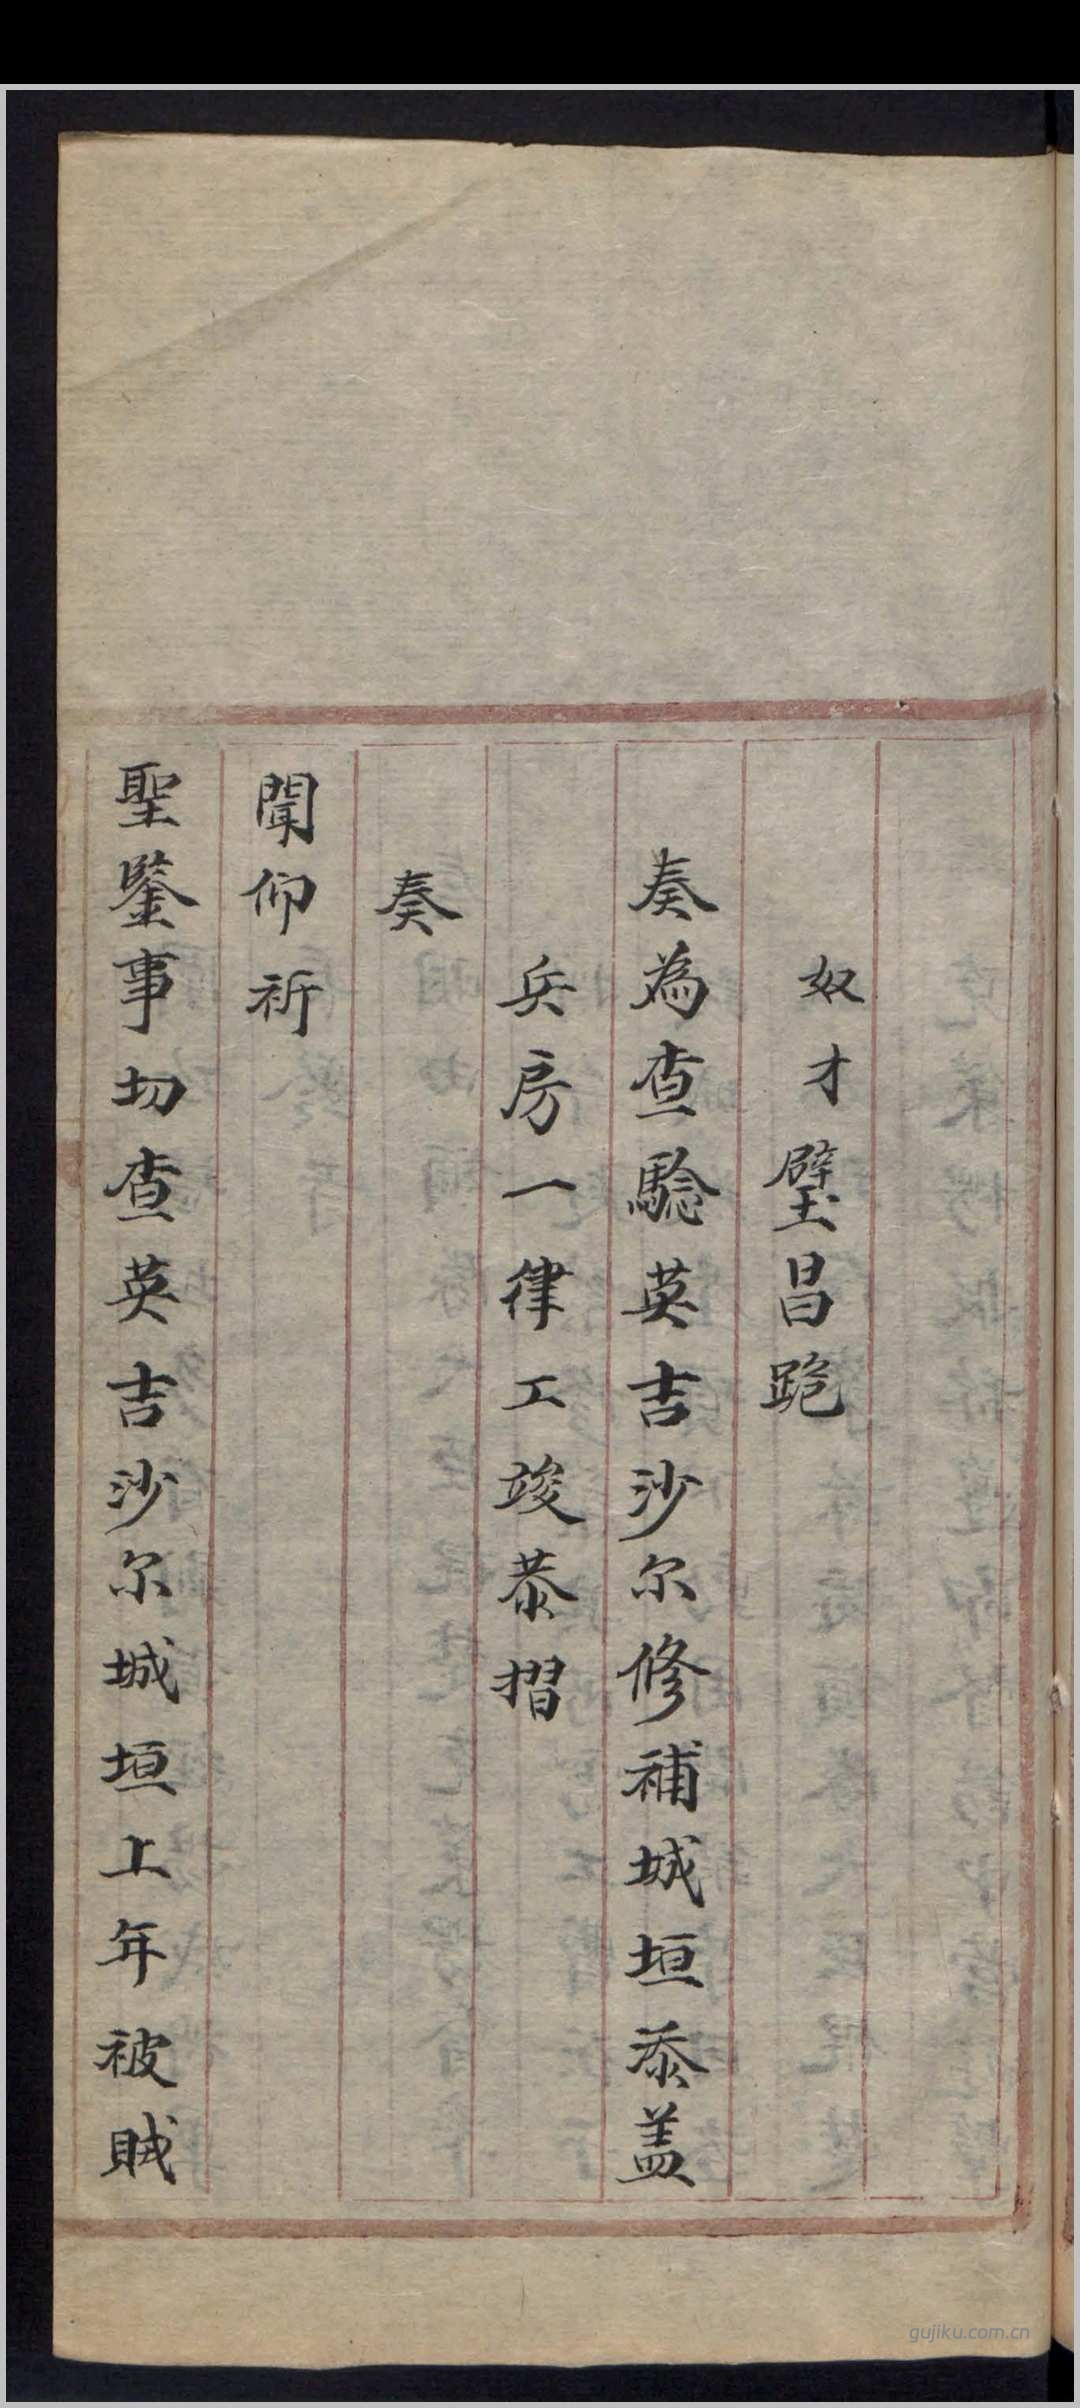 奴才璧昌跪
奏為查驗英吉沙尔修補城垣添蓋
兵房一律工竣恭摺
奏
聞仰祈
聖鑒事切查英吉沙尔城垣上年被賊
gujiku.com.cn